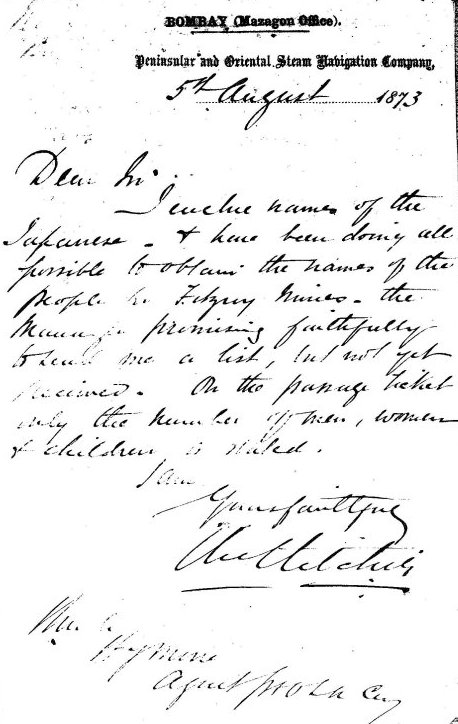 BOMBAY (Mazagon Office).
Peninsular and Oriental Steam Navigation Company,
5th August 1873
Dear Sir
I enclose names of the
Japanese - & have been doing all
possible to obtain the names of the
people Fitzroy Mines - the
Manager promising faithfully
to send me a list, but not yet
received. On the passage ticket
only the number of men, women
& children is stated.
I am
Yours faithfully
Agent